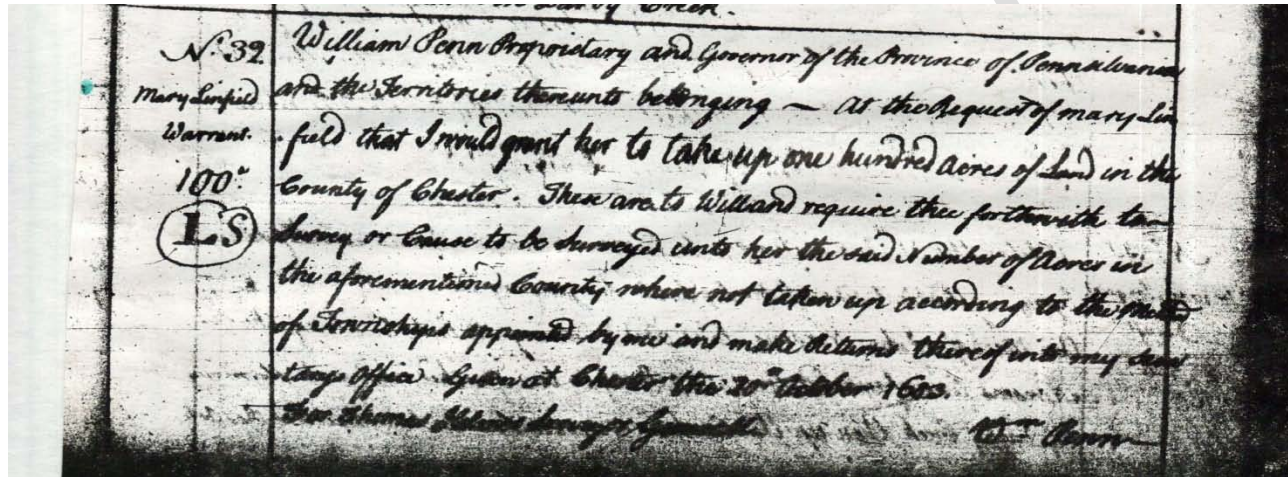 Creek.
No. 32
Mary Linfield
Warrant.
100a.
LS
William Penn Proprietary and Governor of the Province of Pennsilvania
and the Territories thereunto belonging — At the Request of mary Lin
field that I would grant her to take up one hundred acres of Land in the
County of Chester. These are to Will and require thee forthwith to
Survey or Cause to be Surveyed unto her the said Number of Acres in
the aforementioned County where not taken up according to the Method
of Townships appointed by me and make Returns thereof into my Secre
tarys Office Given at Chester the 20th October 1683.
For Thomas Holmes Surveyr. Generall
Wm Penn